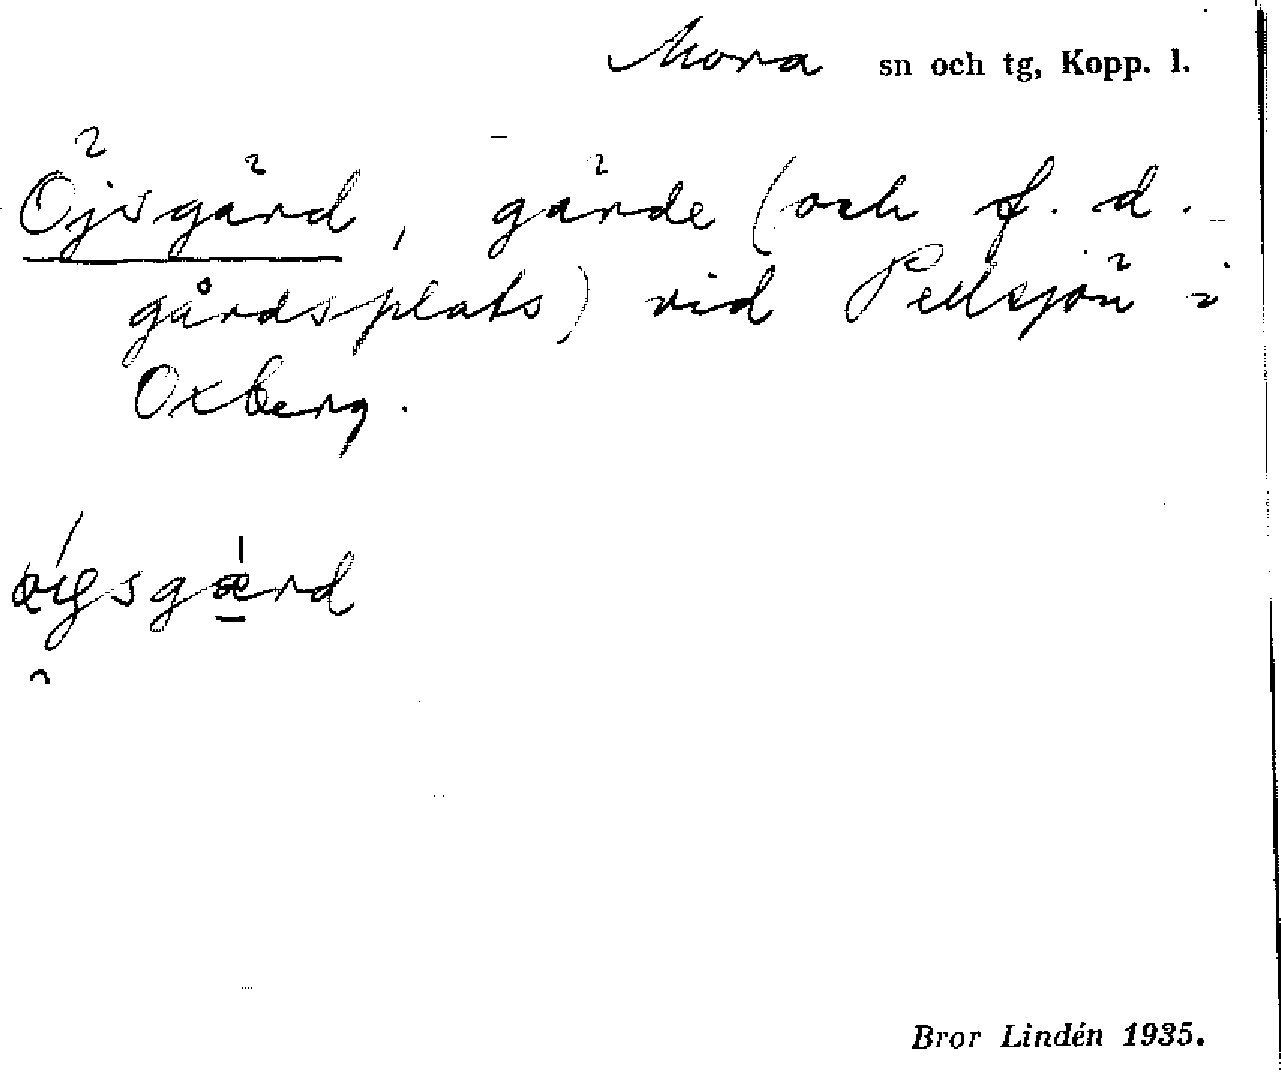 Mora sn och tg, Kopp. l.
Öjsgärd, gärde (och f. d.
gårdsplats) vid Pellsjön i
Oxberg.
Bror Lindén 1935.